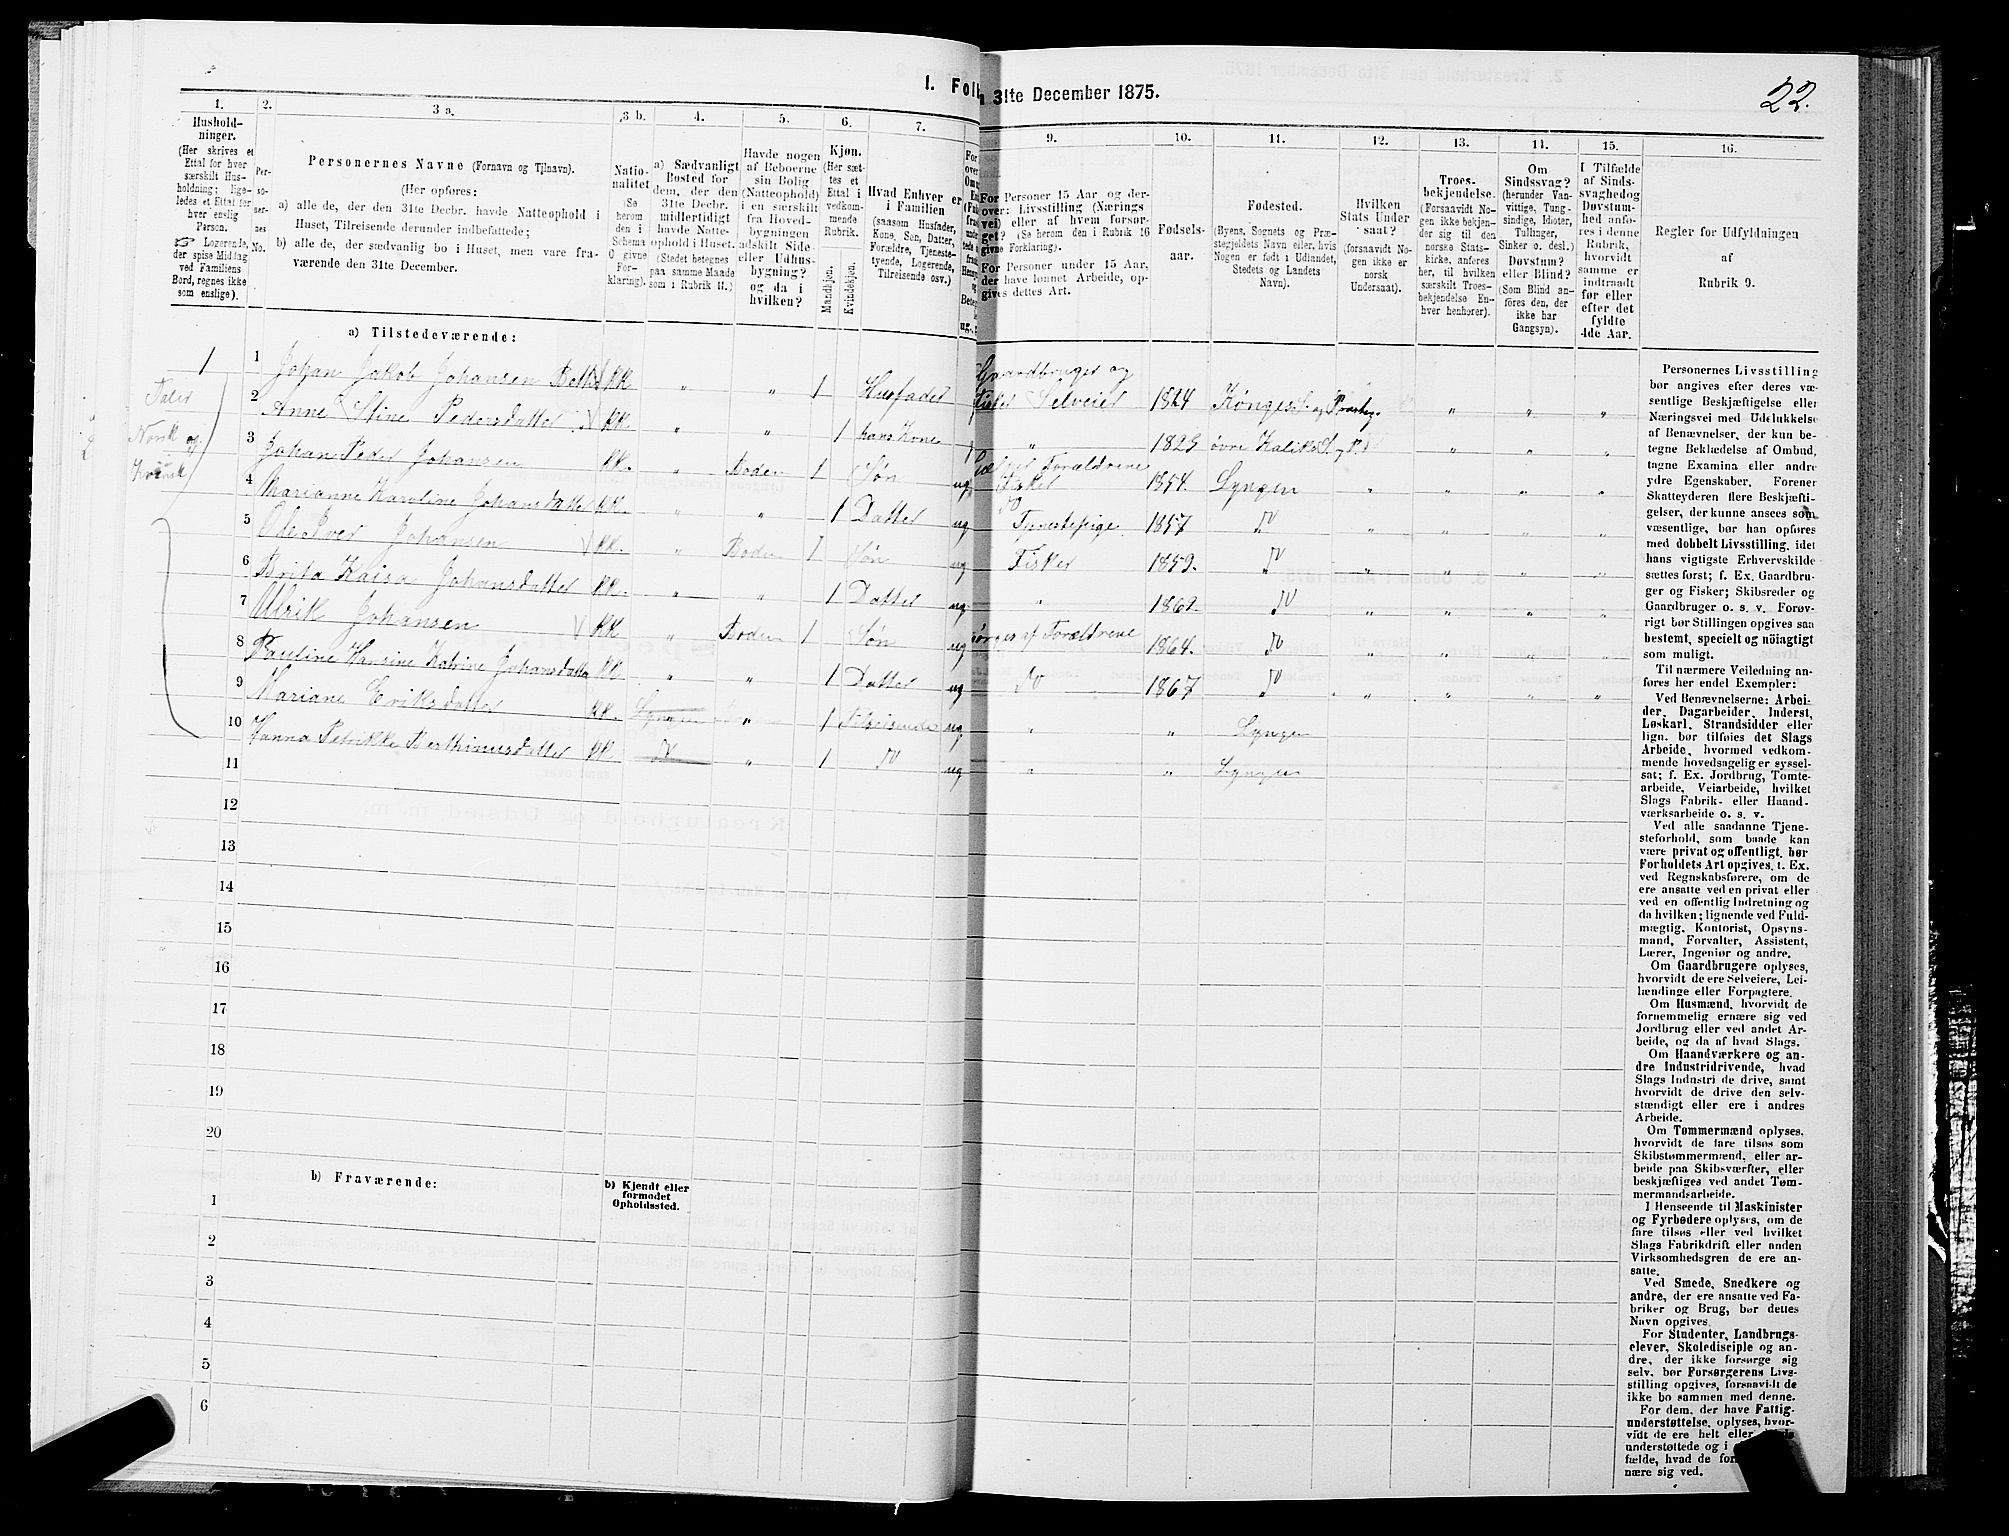 1. Fol
n 31te December 1875.
22.
1.
2.
3 a.
3 b.
4.
5.
6.
7.
9.
10.
11.
12.
13.
14.
15.
16.
Hushold-
ninger.
(Her skrives et
Ettal for hver
særskilt Hus-
holdning; lige-
ledes et Ettal for
hver enslig
Person.
☞ Logerende,
der spise Middag
ved Familiens
Bord, regnes ikke
som enslige).
Per-
so-
ner-
nes
No.
Personernes Navne (Fornavn og Tilnavn).
(Her opføres:
a) alle de, der den 31te Decbr. havde Natteophold i
Huset, Tilreisende derunder indbefattede;
b) alle de, der sædvanlig bo i Huset, men vare fra-
værende den 31te December.
Natio-
nalitet
(Se
herom
den i
Schema
O givne
For-
klaring).
a) Sædvanligt
Bosted for
dem, der den
31te Decbr.
midlertidigt
havde Natte-
ophold i Huset.
(Stedet betegnes
paa samme Maade
som i Rubrik 11.)
Havde nogen
af Beboerne
sin Bolig
(Natteophold)
i en særskilt
fra Hoved-
bygningen
adskilt Side-
eller Udhus-
bygning?
og da i
hvilken?
Kjøn.
(Her sæt-
tes et
Ettal i
vedkom-
mende
Rubrik.
Mandkjøn.
Kvindekjøn.
Hvad Enhver er
i Familien
(saasom Husfader,
Kone, Søn, Datter,
Forældre, Tjeneste-
tyende, Logerende,
Tilreisende osv.)
For Personer 15 Aar og der-
over: Livsstilling (Nærings
vei) eller af hvem forsør-
get? (Se herom den i Rubrik 16
givne Forklaring).
For Personer under 15 Aar,
der have lønnet Arbeide, op-
gives dettes Art.
Fødsels-
aar.
Fødested.
(Byens, Sognets og Præ-
stegjeldets Navn eller, hvis
Nogen er født i Udlandet,
Stedets og Landets
Navn).
Hvilken
Stats Under
saat?
(forsaavidt No-
gen ikke er
norsk
Undersaat).
Troes-
bekjendelse.
(Forsaavidt No-
gen ikke bekjen-
der sig til den
norske Stats-
kirke, anføres
her, til hvilken
særskilt Troes-
bekjendelse En-
hver henhører).
Om
Sindssvag?
(herunder Van-
vittige, Tung-
sindige, Idioter,
Tullinger,
Sinker o. desl.)
Døvstum?
eller Blind?
(Som Blind an-
føres den, der
ikke har
Gangsyn).
I Tilfælde
af Sinds-
svaghed og
Døvstum-
hed anfø-
res i denne
Rubrik,
hvorvidt
samme er
indtraadt
før eller
efter det
fyldte
4de Aar.
Regler for Udfyldningen
af
Rubrik 9.
a) Tilstedeværende:
1 1 Johan Jakob Johansen KK " " 1 Husfader Gaardbruger og
Fisker Selveier 1824
Taler
Norsk og
Kvensk
2 Anne Stine Pedersdatter KK " " 1 hans Kone " 1823 øvre Kaliks
3 Johan Peder Johansen KK. " Boden 1 Søn ug Forældrene
Fisker 1854. Lyngen " " " "
4 Marianne Karoline Johansdatter KK. " " 1 Datter ug Do
Tjenestepige 1857 Do " " " "
5 Ole Iver Johansen KK. " Boden 1 Søn ug Fisker 1859. Do " " " "
6 Brita Kaisa Johansdatter KK. " " 1 Datter ug " 1862. Do " " " "
7 Ulrik Johansen KK " Boden 1 Søn ug sørges af Forældrene 1864. Do " " " "
8 Pauline Hansine Katrine Johansdatter KK. " " 1 Datter ug Do 1867 Do " " " "
9 Mariane Eriksdatter KK. Lyngen " 1 Tilreisende ug " " Lyngen
10 Hanna Petrikke Berthinusdatter KK Do " 1 Do ug " " Lyngen
11
12
13
14
15
16
17
18
19
20
b) Fraværende:
b) Kjendt eller
formodet
Opholdssted.
1
2
3
4
5
6
Personernes Livsstilling
bør angives efter deres væ-
sentlige Beskjæftigelse eller
Næringsvei med Udelukkelse
af Benævnelser, der kun be-
tegne Beklædelse af Ombud,
tagne Examina eller andre
ydre Egenskaber. Forener
Skatteyderen flere Beskjæfti-
gelser, der kunne ansees som
væsentlige, bør han opføres
med dobbelt Livsstilling, idet
hans vigtigste Erhvervskilde
sættes først; f. Ex. Gaardbru-
ger og Fisker; Skibsreder og
Gaardbruger o. s. v. Forøv-
rigt bør Stillingen opgives saa
bestemt, specielt og nöiagtigt
som muligt.
Til nærmere Veiledning an-
føres her endel Exempler:
Ved Benævnelserne: Arbei-
der, Dagarbeider, Inderst,
Løskarl, Strandsidder eller
lign. bør tilføies det Slags
Arbeide, hvormed vedkom-
mende hovedsagelig er syssel-
sat; f. Ex. Jordbrug, Tomte-
arbeide, Veiarbeide, hvilket
Slags Fabrik- eller Haand-
værksarbeide o. s. v.
Ved alle saadanne Tjene-
steforhold, som baade kan
være privat og offentligt, bør
Forholdets Art opgives, t. Ex.
ved Regnskabsførere, om de
ere ansatte ved en privat eller
ved en offentlig Indretning og
da hvilken; lignende ved Fuld-
mægtig, Kontorist, Opsyns-
mand, Forvalter, Assistent,
Lærer, Ingeniør og andre.
Om Gaardbrugere oplyses,
hvorvidt de ere Selveiere, Lei-
lændinge eller Forpagtere.
Om Husmænd, hvorvidt de
fornemmelig ernære sig ved
Jordbrug eller ved andet Ar-
beide, og da af hvad Slags.
Om Haandværkere og an-
dre Industridrivende, hvad
Slags Industri de drive, samt
hvorvidt de drive den selv-
stændigt eller ere i andres
Arbeide.
Om Tømmermænd oplyses,
hvorvidt de fare tilsøs som
Skibstømmermænd, eller ar-
beide paa Skibsværfter, eller
beskjæftiges ved andet Tøm-
mermandsarbeide.
I Henseende til Maskinister
og Fyrbødere oplyses, om de
fare tilsøs eller ved hvilket
Slags Fabrikdrift eller anden
Virksomhedsgren de ere an-
satte.
Ved Smede, Snedkere og
andre, der ere ansatte ved Fa-
briker og Brug, bør dettes
Navn opgives.
For Studenter, Landbrugs-
elever, Skoledisciple og an-
dre, der ikke forsørge sig
selv, bør Forsørgerens Livs-
stilling opgives, forsaavidt de
ikke bo sammen med denne.
For dem, der have Fattig-
understøttelse, oplyses, hvor-
vidt de ere helt eller
understøttede og i
fælde, hvad de for
nære sig ved.